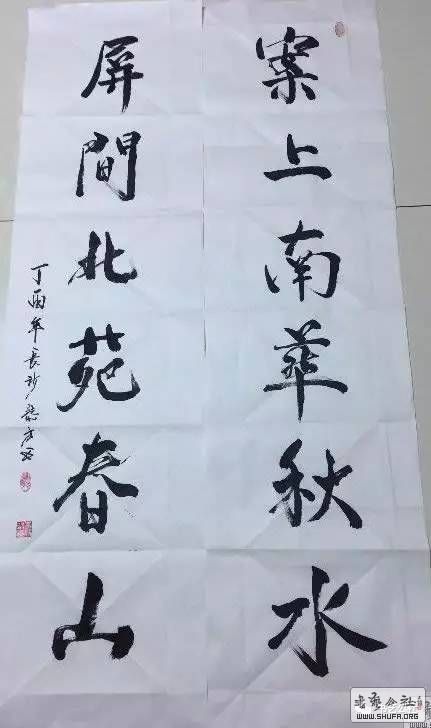 案上南華秋水
屏間北苑春山
丁酉年長沙
書藝公社
WWW.SHUFA.ORG